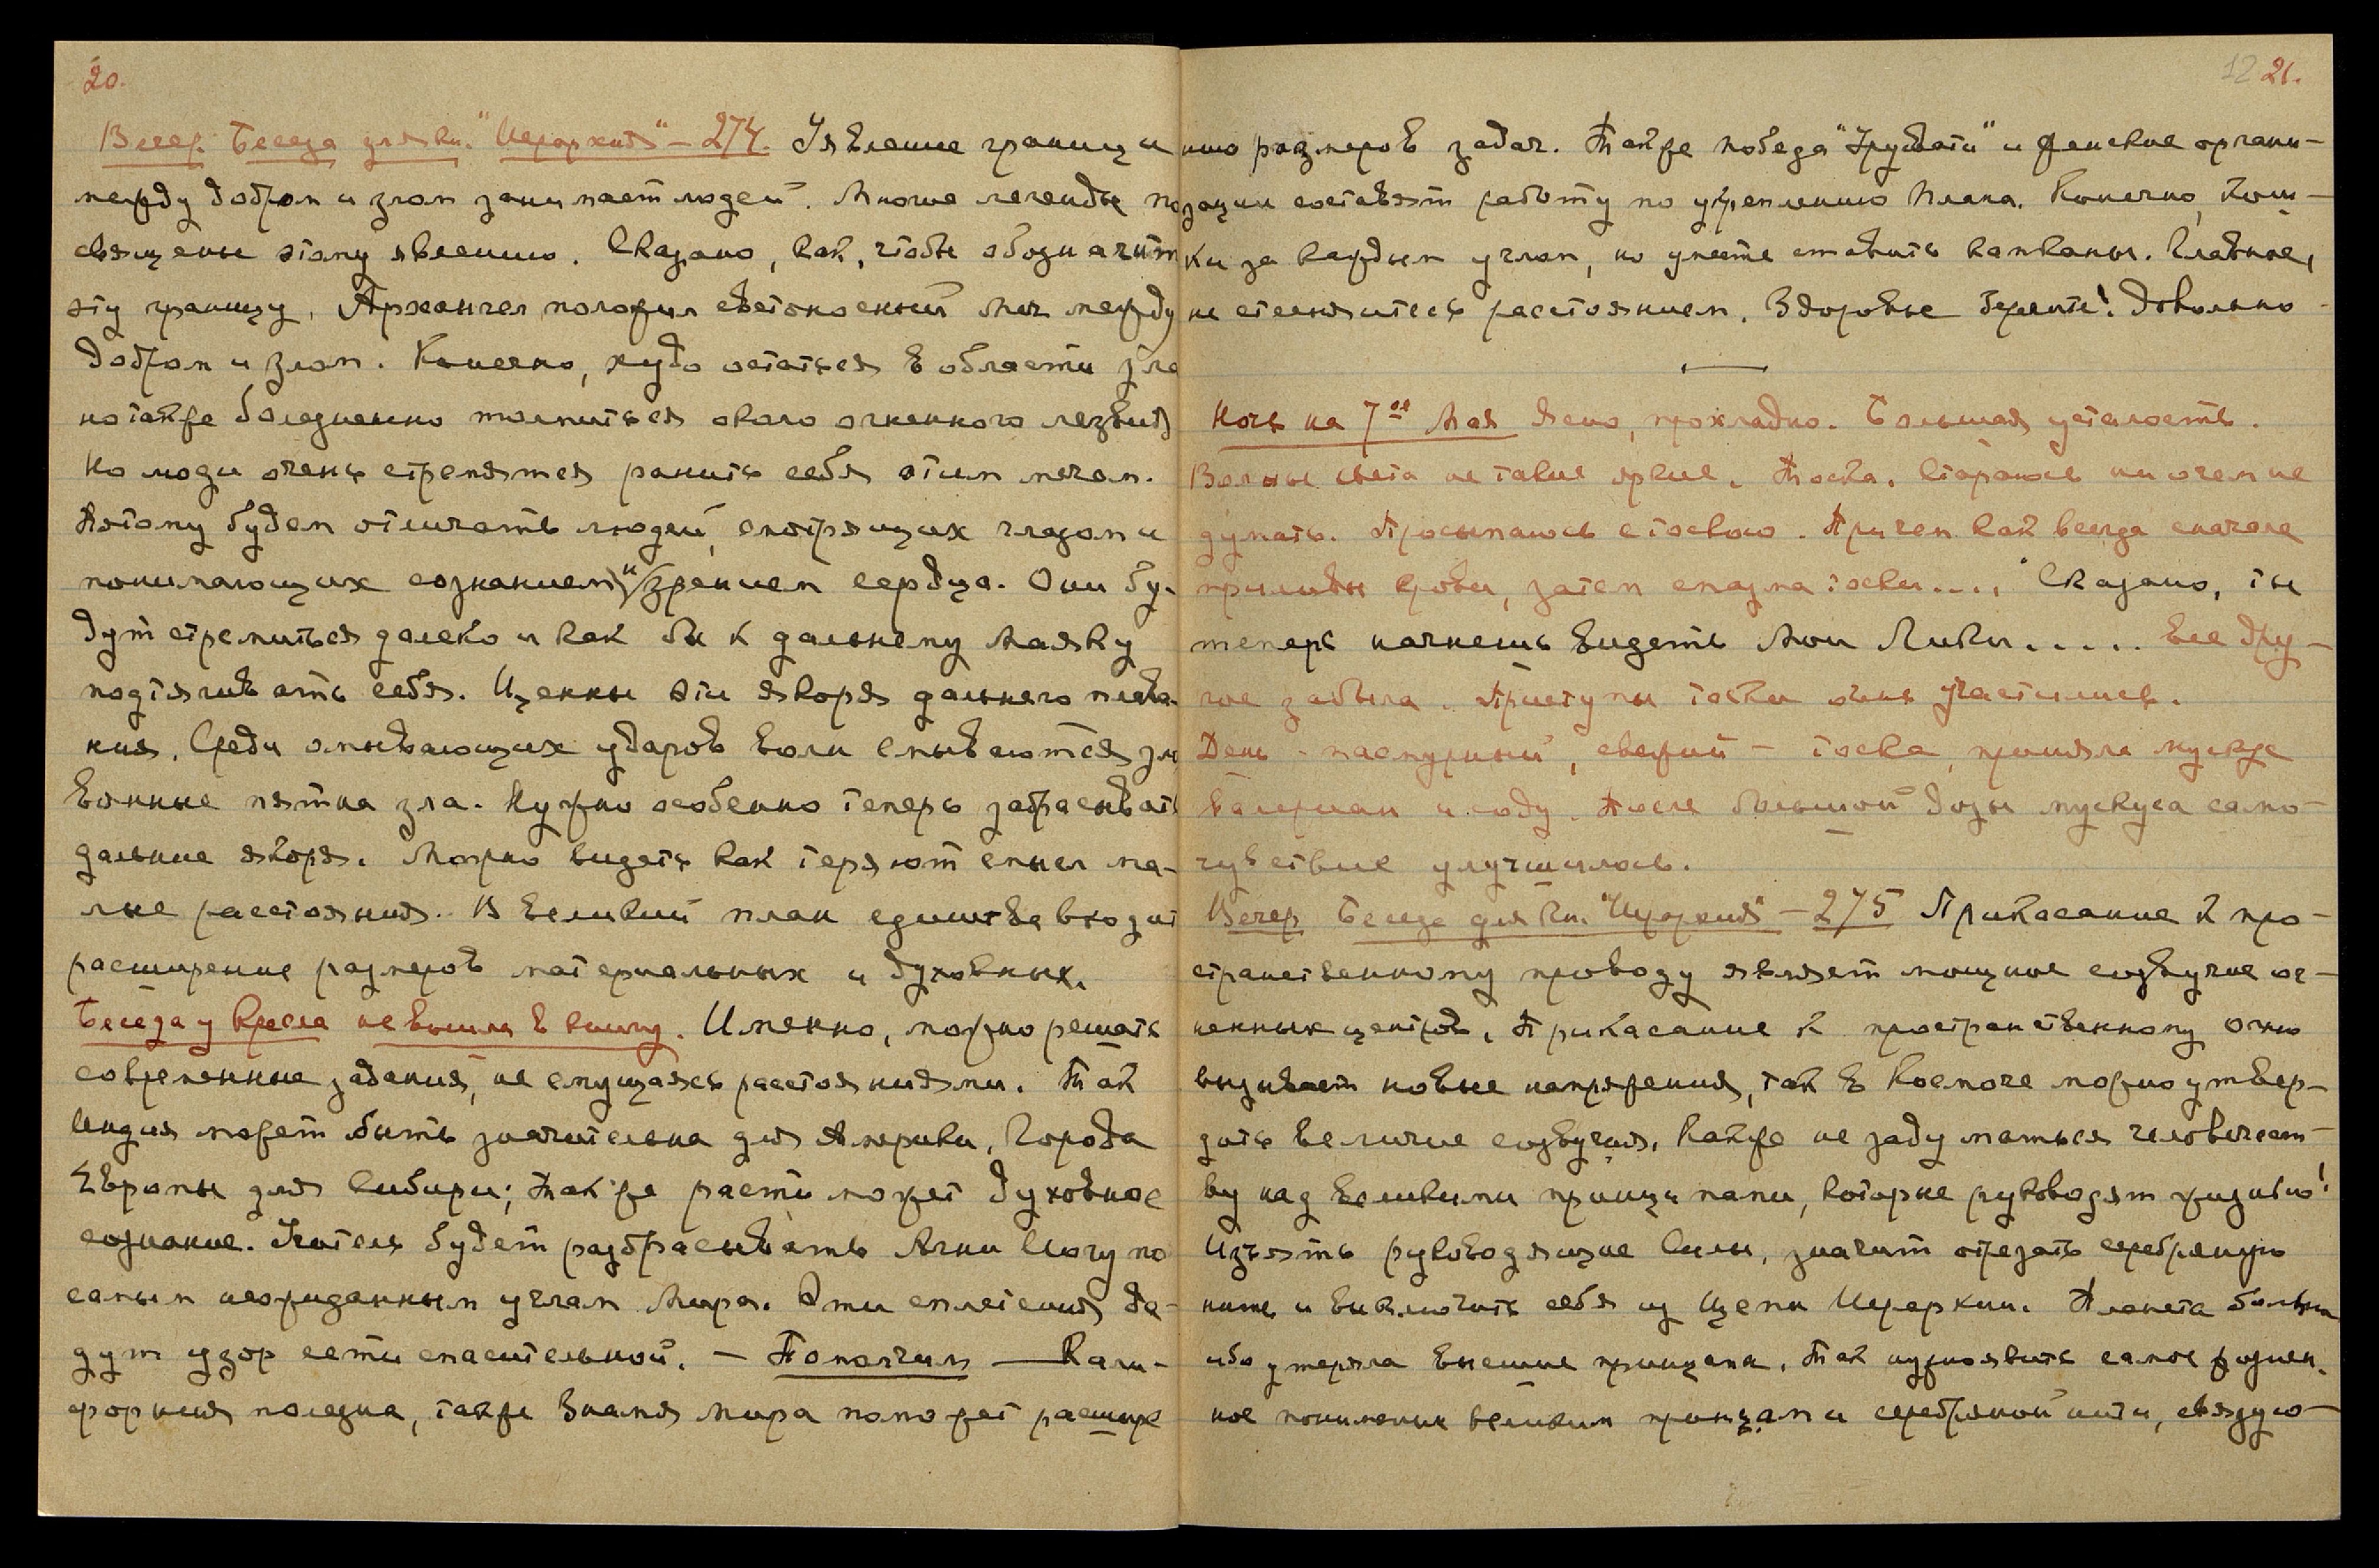 20.
Вечер. Беседа для кн. "Иерархия" – 274. Уявление границы
между добром и злом занимает людей. Многие легенды по
священы этому явлению. Сказано, как, чтобы обозначить
эту границу, Архангел положил светоносный меч между
добром и злом. Конечно, худо остаться в области зла
но также болезненно толпиться около огненного лезвия
Но люди очень стремятся ранить себя этим мечом.
Потому будем отличать людей, смотрящих глазом и
понимающих сознанием и зрением сердца. Они бу-
дут стремиться далеко и как бы к дальнему маяку
подтягивать себя. Ценны эти якоря дальнего плава-
ния. Среди омывающих ударов волн смываются зло
вонные пятна зла. Нужно особенно теперь забрасывать
дальние якоря. Можно видеть как теряют смысл ма-
лые расстояния. В великий план единства входит
расширение размеров материальных и духовных.
Беседа у Кресла не вошла в книгу. Именно, можно решать
современные задания, не смущаясь расстояниями. Так
Индия может быть значительна для Америки, Города
Европы для Сибири; так же расти может духовное
сознание. Учитель будет разбрасывать Агни Йогу по
самым неожиданным углам Мира. Эти сплетения да-
дут узор сети спасительной. – Помолчим — Кали-
форния полезна, также Знамя мира поможет расшире
21.
нию размеров задач. Также победа "Урусвати" и женские органи-
зации составят работу по укреплению Плана. Конечно, кош-
ки за каждым углом, но умейте ставить капканы. Главное,
не стесняйтесь расстоянием. Здоровье берегите! Довольно –
Ночь на 7ое Мая Ясно, прохладно. Большая усталость.
Волны света не такие яркие. Тоска. Стараюсь ни о чем не
думать. Просыпаюсь с тоскою. Причем как всегда сначала
приливы крови, затем спазма тоски.... Сказано, ты
теперь начнешь видеть Мои Лики..... Все дру-
гое забыла. Приступы тоски очень участились.
День – пасмурный, свежий – тоска, приняла мускус
валериан и соду. После большой дозы мускуса само-
чувствие улучшилось.
Вечер Беседа для кн. "Иерархия" – 275 Прикасание к про-
странственному проводу являет мощное созвучие ог-
ненных центров. Прикасание к пространственному огню
вызывает новые напряжения, так в Космосе можно утвер-
дить величие созвучия. Как же не задуматься человечест-
ву над великими принципами, которые руководят жизнью!
Изъять руководящие Силы, значит отрезать серебряную
нить и выключить себя из Цепи Иерархии. Планета больна
ибо утеряла высшие принципы. Так нужно явить самое жизнен-
ное понимание великим принцам и серебряной нити, связую-